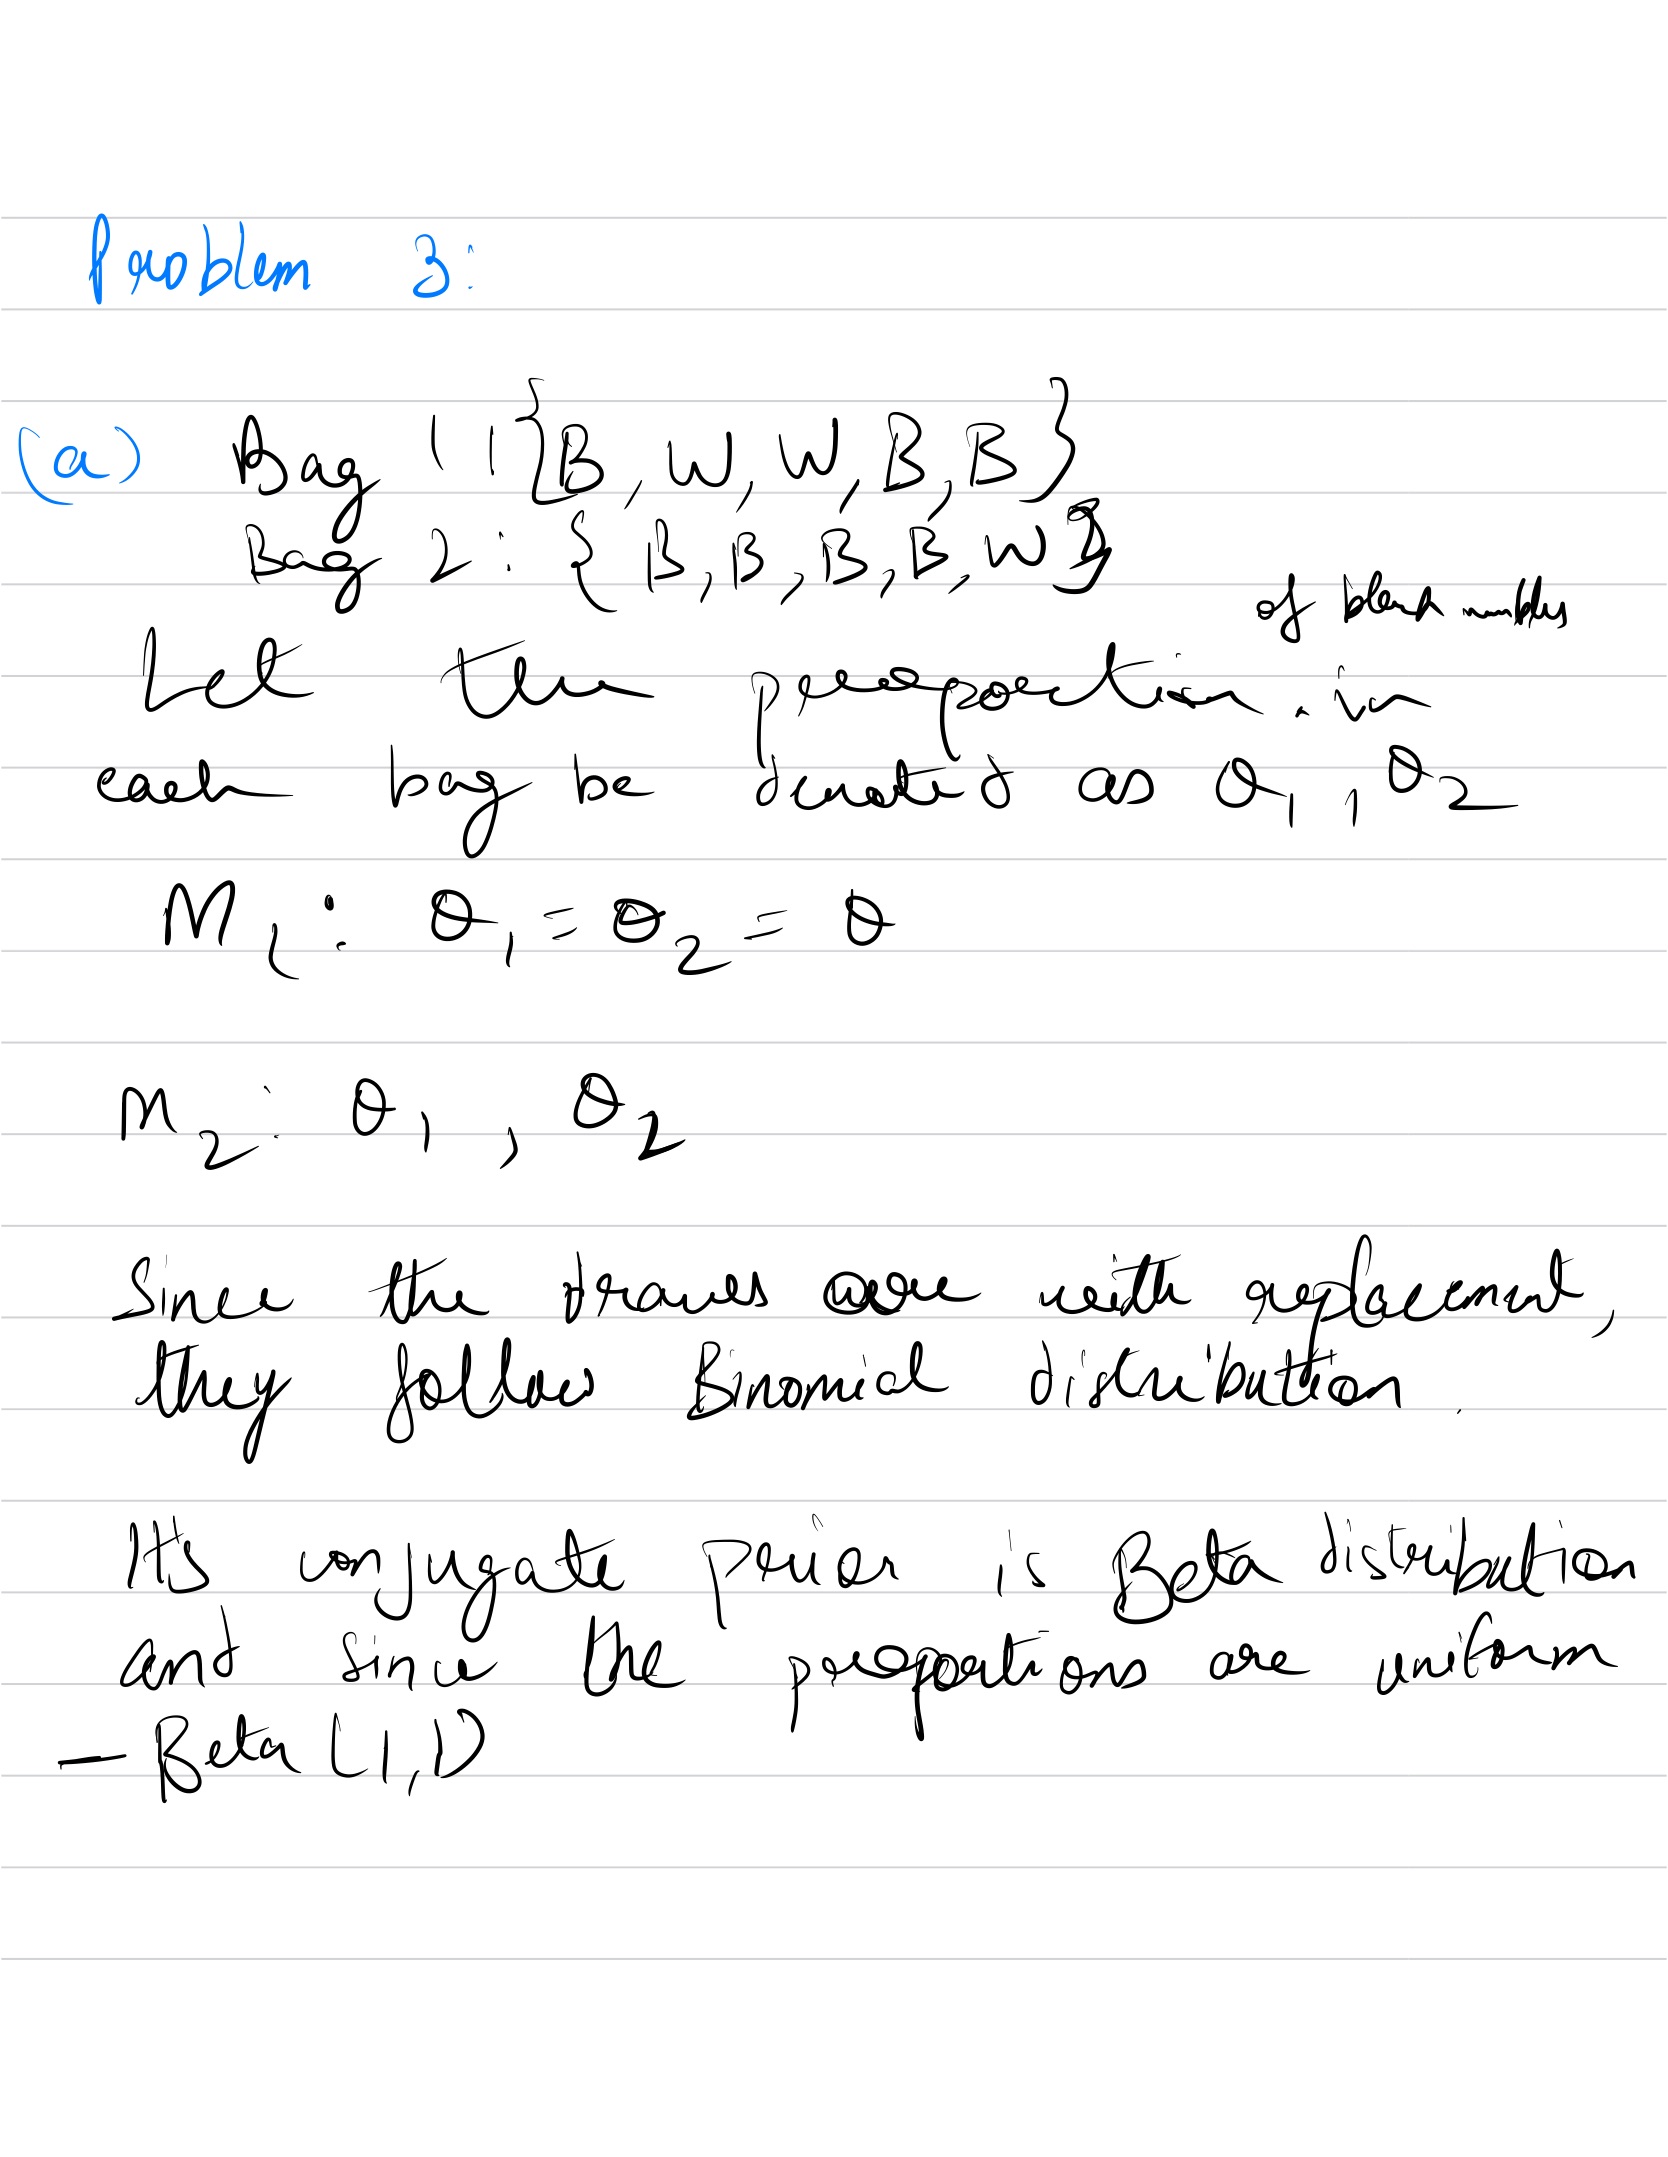 Problem 3:
(a) Bag 1 : {B, W, W, B, B}
Bag 2 : { B, B, B, B, W }
of black marbles
Let the proportion . in
each bag be denoted as θ₁ , θ₂
M₁ : θ₁ = θ₂ = θ
M₂ : θ₁ , θ₂
Since the draws are with replacement,
they follow Binomial distribution.
It's conjugate prior is Beta distribution
and since the proportions are uniform
— Beta (1,1)